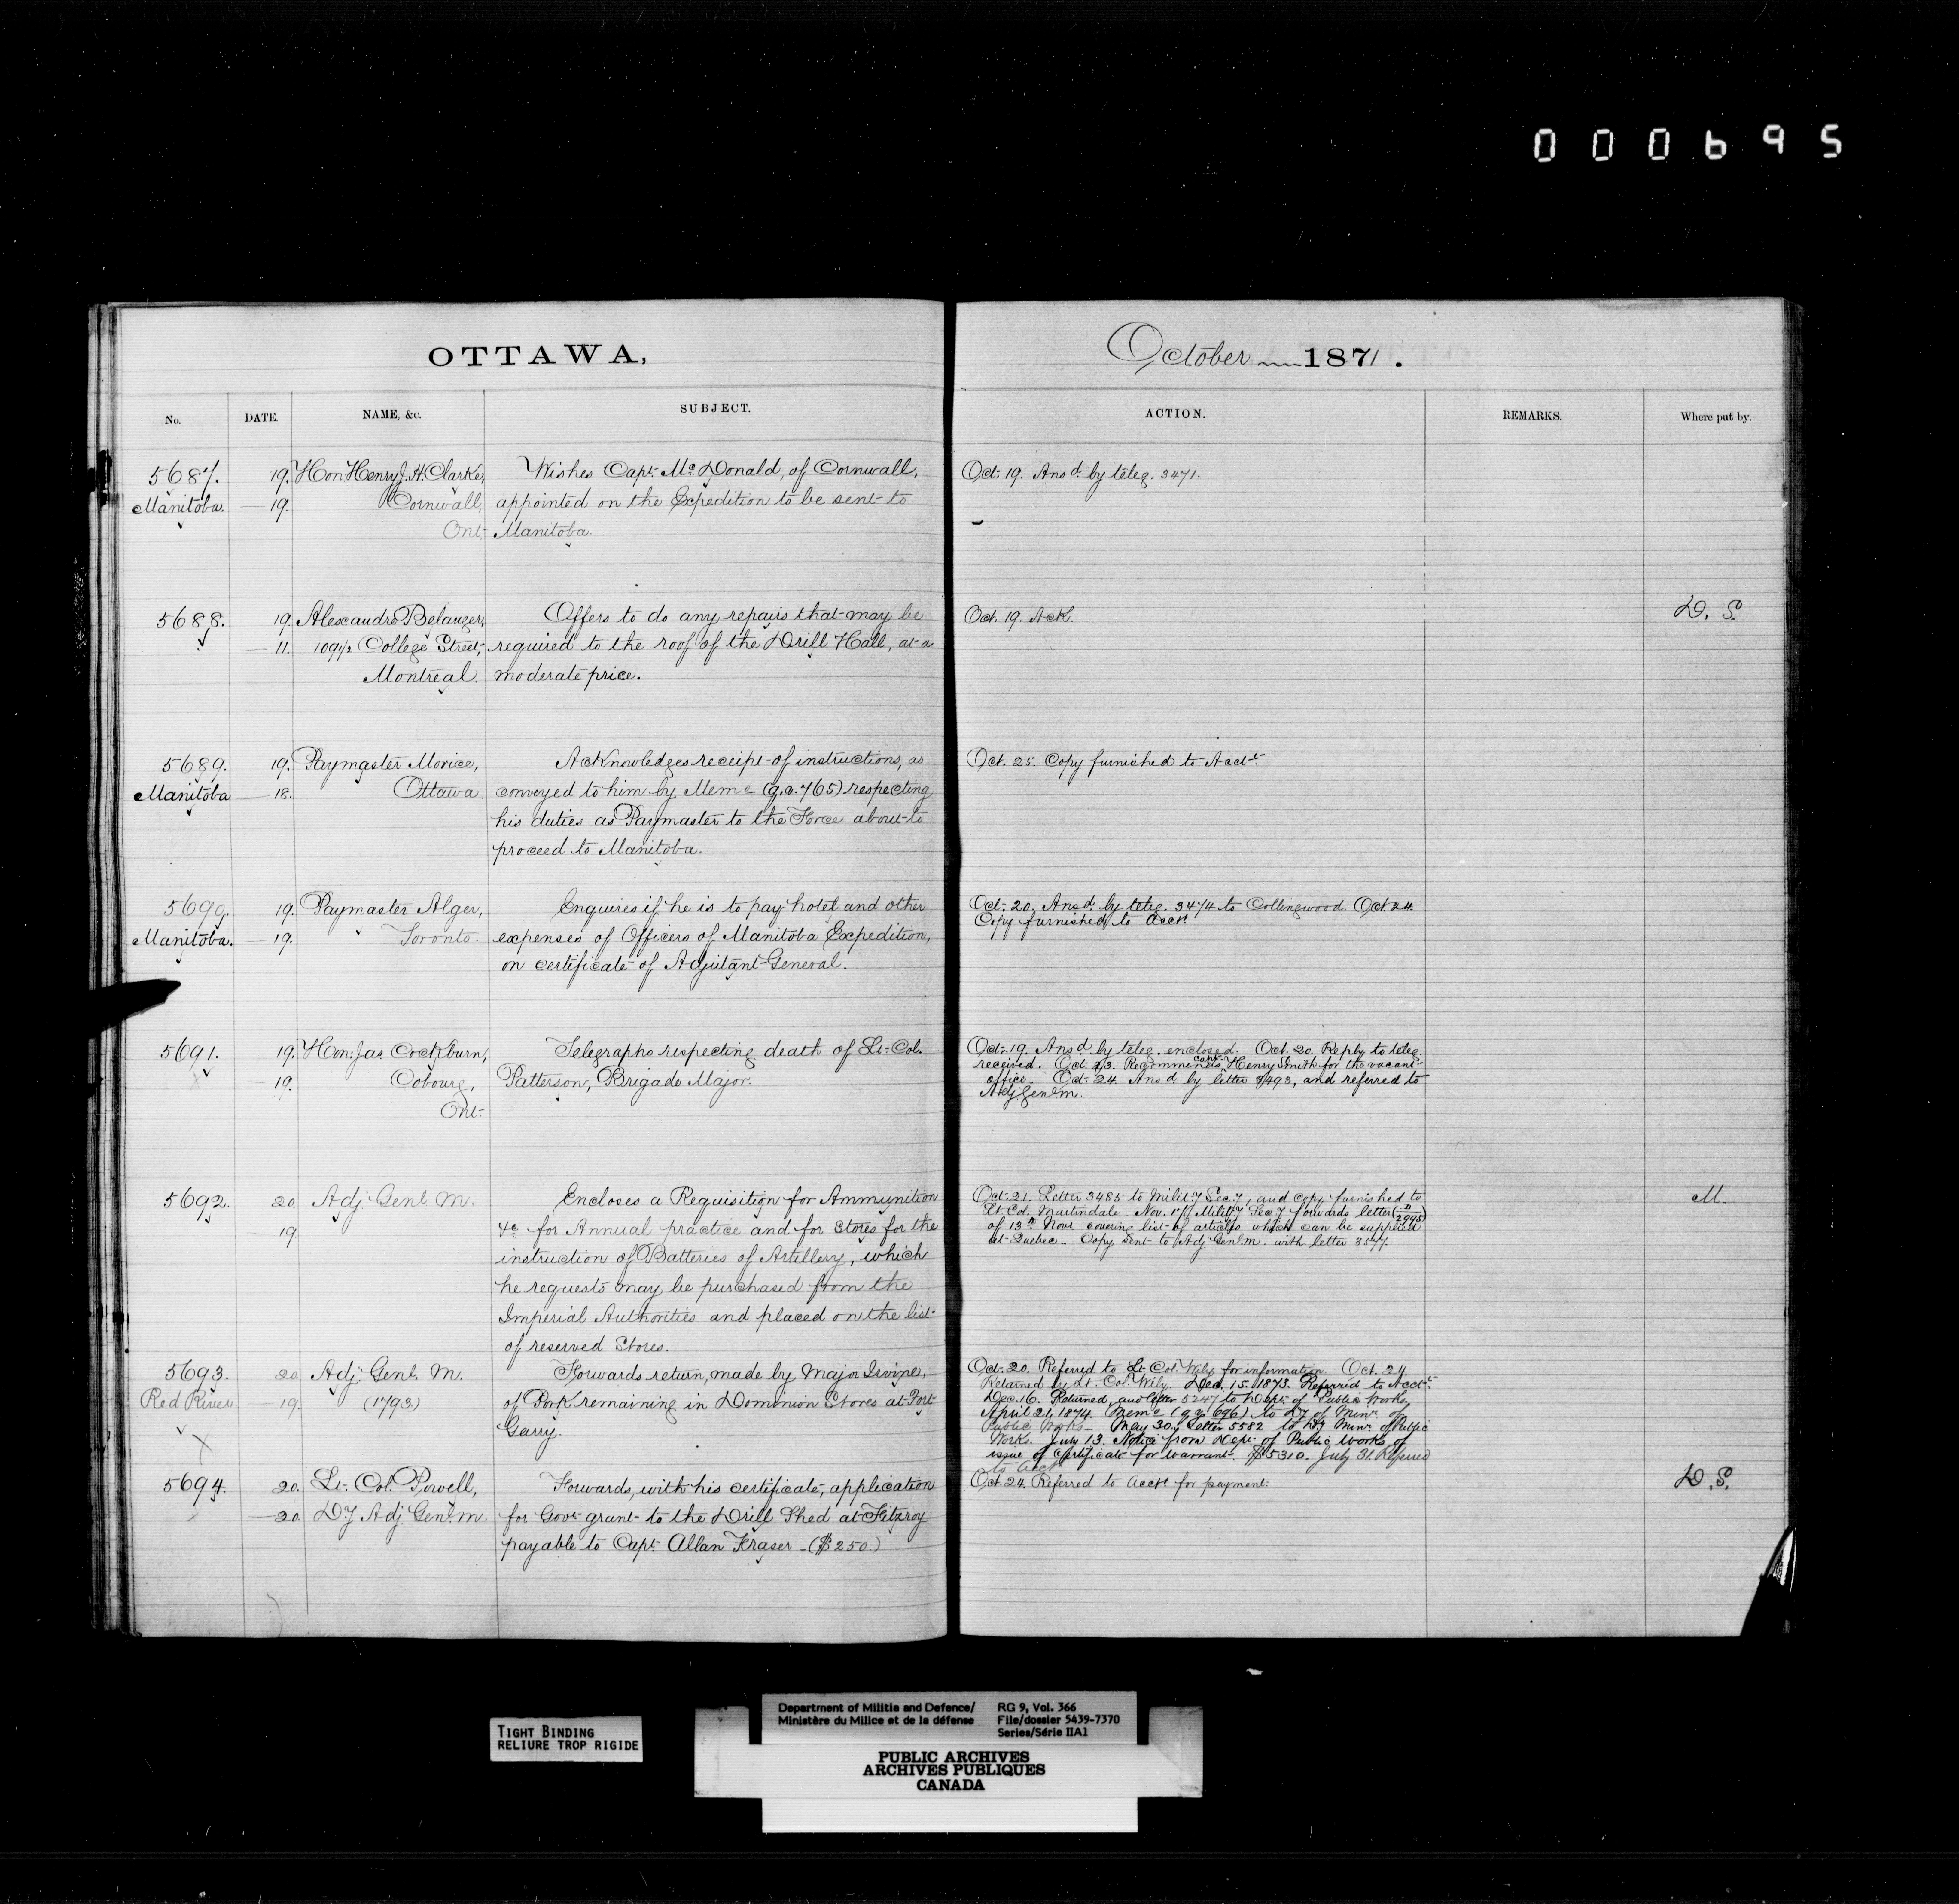 000695
OTTAWA,
October 1871.
No. DATE. NAME, &c. SUBJECT. ACTION. REMARKS. Where put by.
5687. 19. Hon. Henry J. H. Clarke, Wishes Capt. Mc.Donald, of Cornwall, Oct. 19. Ansd. by teleg. 3471.
Manitoba. — 19. Cornwall, appointed on the Expedition to be sent to
Ont. Manitoba.
5688. 19. Alexandre Belanger, Offers to do any repairs that may be Oct. 19. Ack. D. S.
— 11. 109 1/2 College Street, required to the roof of the Drill Hall, at a
Montreal. moderate price.
5689. 19. Paymaster Morice, Acknowledges receipt of instructions, as Oct. 25. Copy furnished to Acct.
Manitoba — 18. Ottawa. conveyed to him by Memo (g.o. 765) respecting
his duties as Paymaster to the Force about to
proceed to Manitoba.
5690. 19. Paymaster Alger, Enquires if he is to pay hotel and other Oct. 20. Ansd. by teleg. 3474 to Collingwood. Oct. 24.
Copy furnished to Acct.
Manitoba. — 19. Toronto. expenses of Officers of Manitoba Expedition,
on certificate of Adjutant General.
5691. 19. Hon. Jas. Cockburn, Telegraphs respecting death of Lt. Col. Oct. 19. Ansd. by teleg. enclosed. Oct. 20. Reply to teleg.
received. Oct. 23. Recommends Capt. Henry Smith for the vacant
— 19. Cobourg, Patterson, Brigade Major. office. Oct. 24. Ansd. by letter 3493, and referred to
Adj. Genl. M.
Ont.
5692. 20. Adj. Genl. M. Encloses a Requisition for Ammunition Oct. 21. Letter 3485 to Mility Secy, and copy furnished to M.
Lt. Col. Martindale. Nov. 17. Mility Secy forwards letter
19. &c for Annual practice and for Stores for the of 13th Novr covering list of articles which can be supplied
at Quebec. Copy sent to Adj. Genl. M. with letter 3577.
instruction of Batteries of Artillery, which
he requests may be purchased from the
Imperial Authorities and placed on the list
of reserved Stores.
5693. 20. Adj. Genl. M. Forwards return, made by Major Irvine, Oct. 20. Referred to Lt. Col. Wily for information. Oct. 24.
Returned by Lt. Col. Wily. Dec. 15. 1873. Referred to Acct.
Red River — 19. (1793) of Pork remaining in Dominion Stores at Fort Dec. 16. Returned, and letter 5247 to Dept. of Public Works.
April 21, 1874. Memo (g.o. 696) to Dy. of Minr. of
Garry. Public Works. May 30. Letter 5582 to Dy. Minr. of Public
Works. July 13. Notice from Dept. of Public Works of
issue of Certificate for Warrant. $5310. July 31. Referred
to Acct.
5694. 20. Lt. Col. Powell, Forwards, with his certificate, application Oct. 24. Referred to Acct. for payment. D. S.
— 20. Dy Adj. Genl. M. for Govt. grant to the Drill Shed at Fitzroy
payable to Capt. Allan Fraser — ($250.)
TIGHT BINDING
RELIURE TROP RIGIDE
Department of Militia and Defence/ RG 9, Vol. 366
Ministère du Milice et de la défense File/dossier 5439-7370
Series/Série IIA1
PUBLIC ARCHIVES
ARCHIVES PUBLIQUES
CANADA